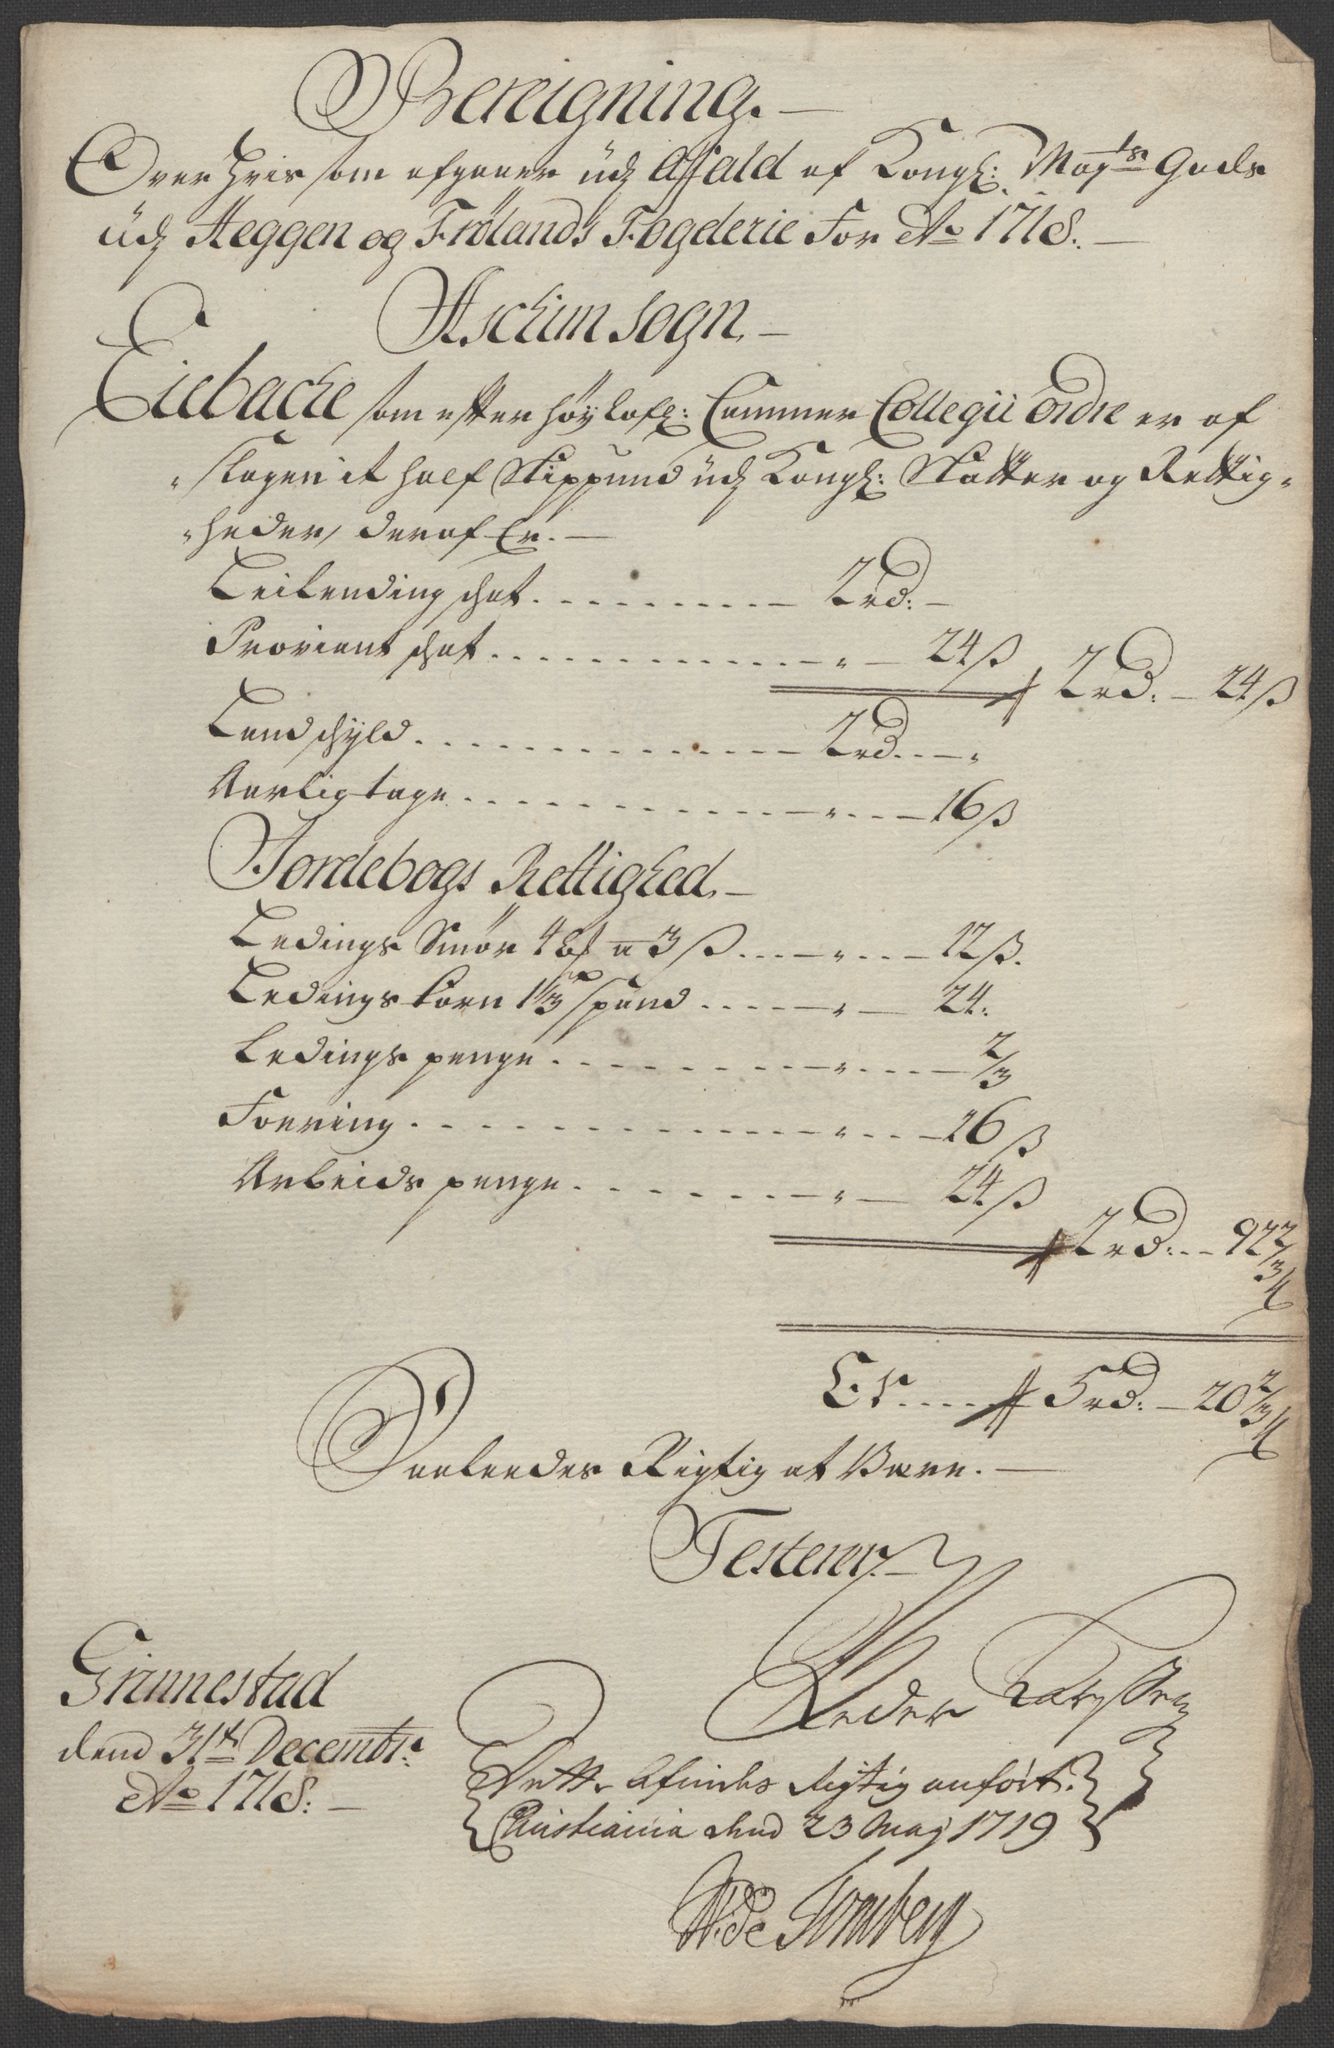 Bereigning.
Over hvis som afgaaer udj Affald af Kongl: Mayts Gods
udj Heggen og Frølands Fogderie For Ao 1718.
Aschim sogn
Eiebache som efter høylofl: Cammer Collegii ordre er af
slagen it half Skippund udj Kongl: Skatter og Rettig-
heder, deraf Er.
Leilending schat . . . 2 rd: -
Proviant schat . . . " - 24 ß 2 rd: - 24 ß
Landschyld . . . 2 rd . . "
Aarlig tage . . . " . . 16 ß
Jordebogs Rettighed
Ledings Smør 4 a 3 ß . . . " . . 12 ß.
Ledings korn 1 1/3 spund . . . " - 24.
Ledings penge . . . " . . 2/3
Foering . . . " . . 16 ß
Arbeids penge . . . " - 24 ß
2 rd: . . 92 2/3 ß
Er . . . 5 rd: - 20 2/3 ß
Saaledes Rigtig at Være.
Testerer
Peder
Grinnestad
dend 31te Decembr:
Ao 1718:
Dette Afindes Rigtig anført.
Christiania dend 23 Maj 1719